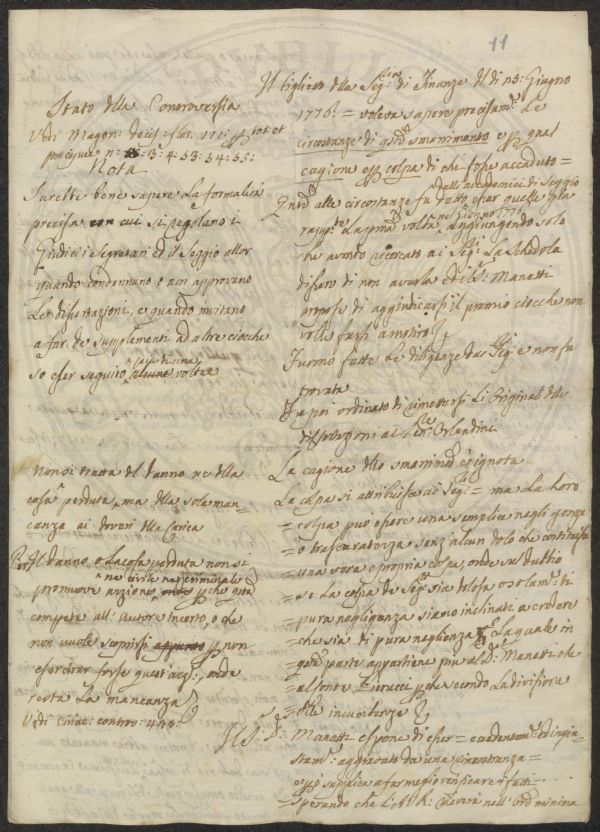 11
Stato della Controversia
Vedi Magon: decis: flor: 111: per tot: et
precipue n: 3: 4: 53: 54: 55:
Nota
Sarebbe bene sapere la formalità
precisa con cui si regolano i
Giudici i Segretari ed il Seggio allor
quando condonnano o non approvano
Le dissertazioni, e quando invitano
a far de supplementi ad altre ciocche
so esser seguito alcune volte
Non si tratta del danno ne della
cosa perduta, ma della sola man-
canza ai doveri della Carica
Per Il danno, o la cosa perduta non si
ne civile ne criminale
promuove azzione perche questa
compete all' Autore incerto, o che
non vuole scoprirsi appunto per non
esercitar forse quest' onde
resta la mancanza
Vedi contro: 422:
Il biglietto della Seg:ria di Finanze del dì 23: Giugno
1776: = voleva sapere precisam:te Le
circostanze di q:to smarrimento e per qual
cagione e per colpa di chi fosse accaduto =
dall' accademici di Seggio
alle circostanze fu detto esser quelle gia
nel Giugno 1776
la prima volta aggiungendo solo
che avendo ricercato ai Seg:ri La Schedola
dissero di non averla ed il D: Manetti
propose di aggiudicarsi il premio ciocche non
volle farsi
Furono fatte Le diligenze dai Seg:ri e non fu
trovata
Fu poi ordinato di rimettersi Li Originali delle
dissertazioni al Orlandini
La cagione dello smarrim:to è ignota
La colpa si attribuisce ai Seg:ri = ma La Loro
= colpa può essere una semplice negligenza
= o trascuratezza senz' alcun dolo che costituisca
= una vera e propria colpa, onde sul dubbio
= se La colpa de Seg:ri sia dolosa o solam:te di
= pura negligenza siamo inclinati a credere
= che sia di pura neglienza La quale in
parte appartiene più al D: Manetti che
= al Conte Pierucci perche secondo La divisione
= delle incumbenze
Il S: D: Manetti espone di esser = evidentem:te ed ingiu-
stam:te aggravato da una circostanza =
e supplica a far meglio verificare i fatti
sperando che nell'